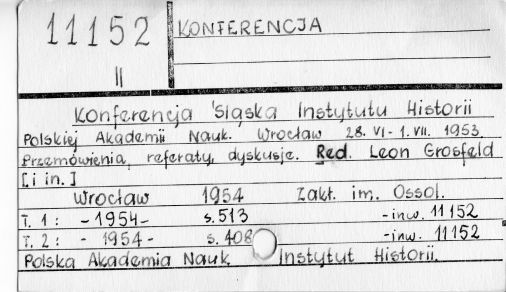 11152
II
KONFERENCJA
Konferencja Śląska Instytutu Historii
Polskiej Akademii Nauk. Wrocław 28.VI-1.VII. 1953
Przemówienia, referaty, dyskusje. Red. Leon Grosfeld
[i in.]
Wrocław 1954 Zakł. im. Ossol.
T. 1: - 1954 - s. 513 - inw. 11152
T. 2: - 1954 - s. 408 - inw. 11152
Polska Akademia Nauk Instytut Historii.